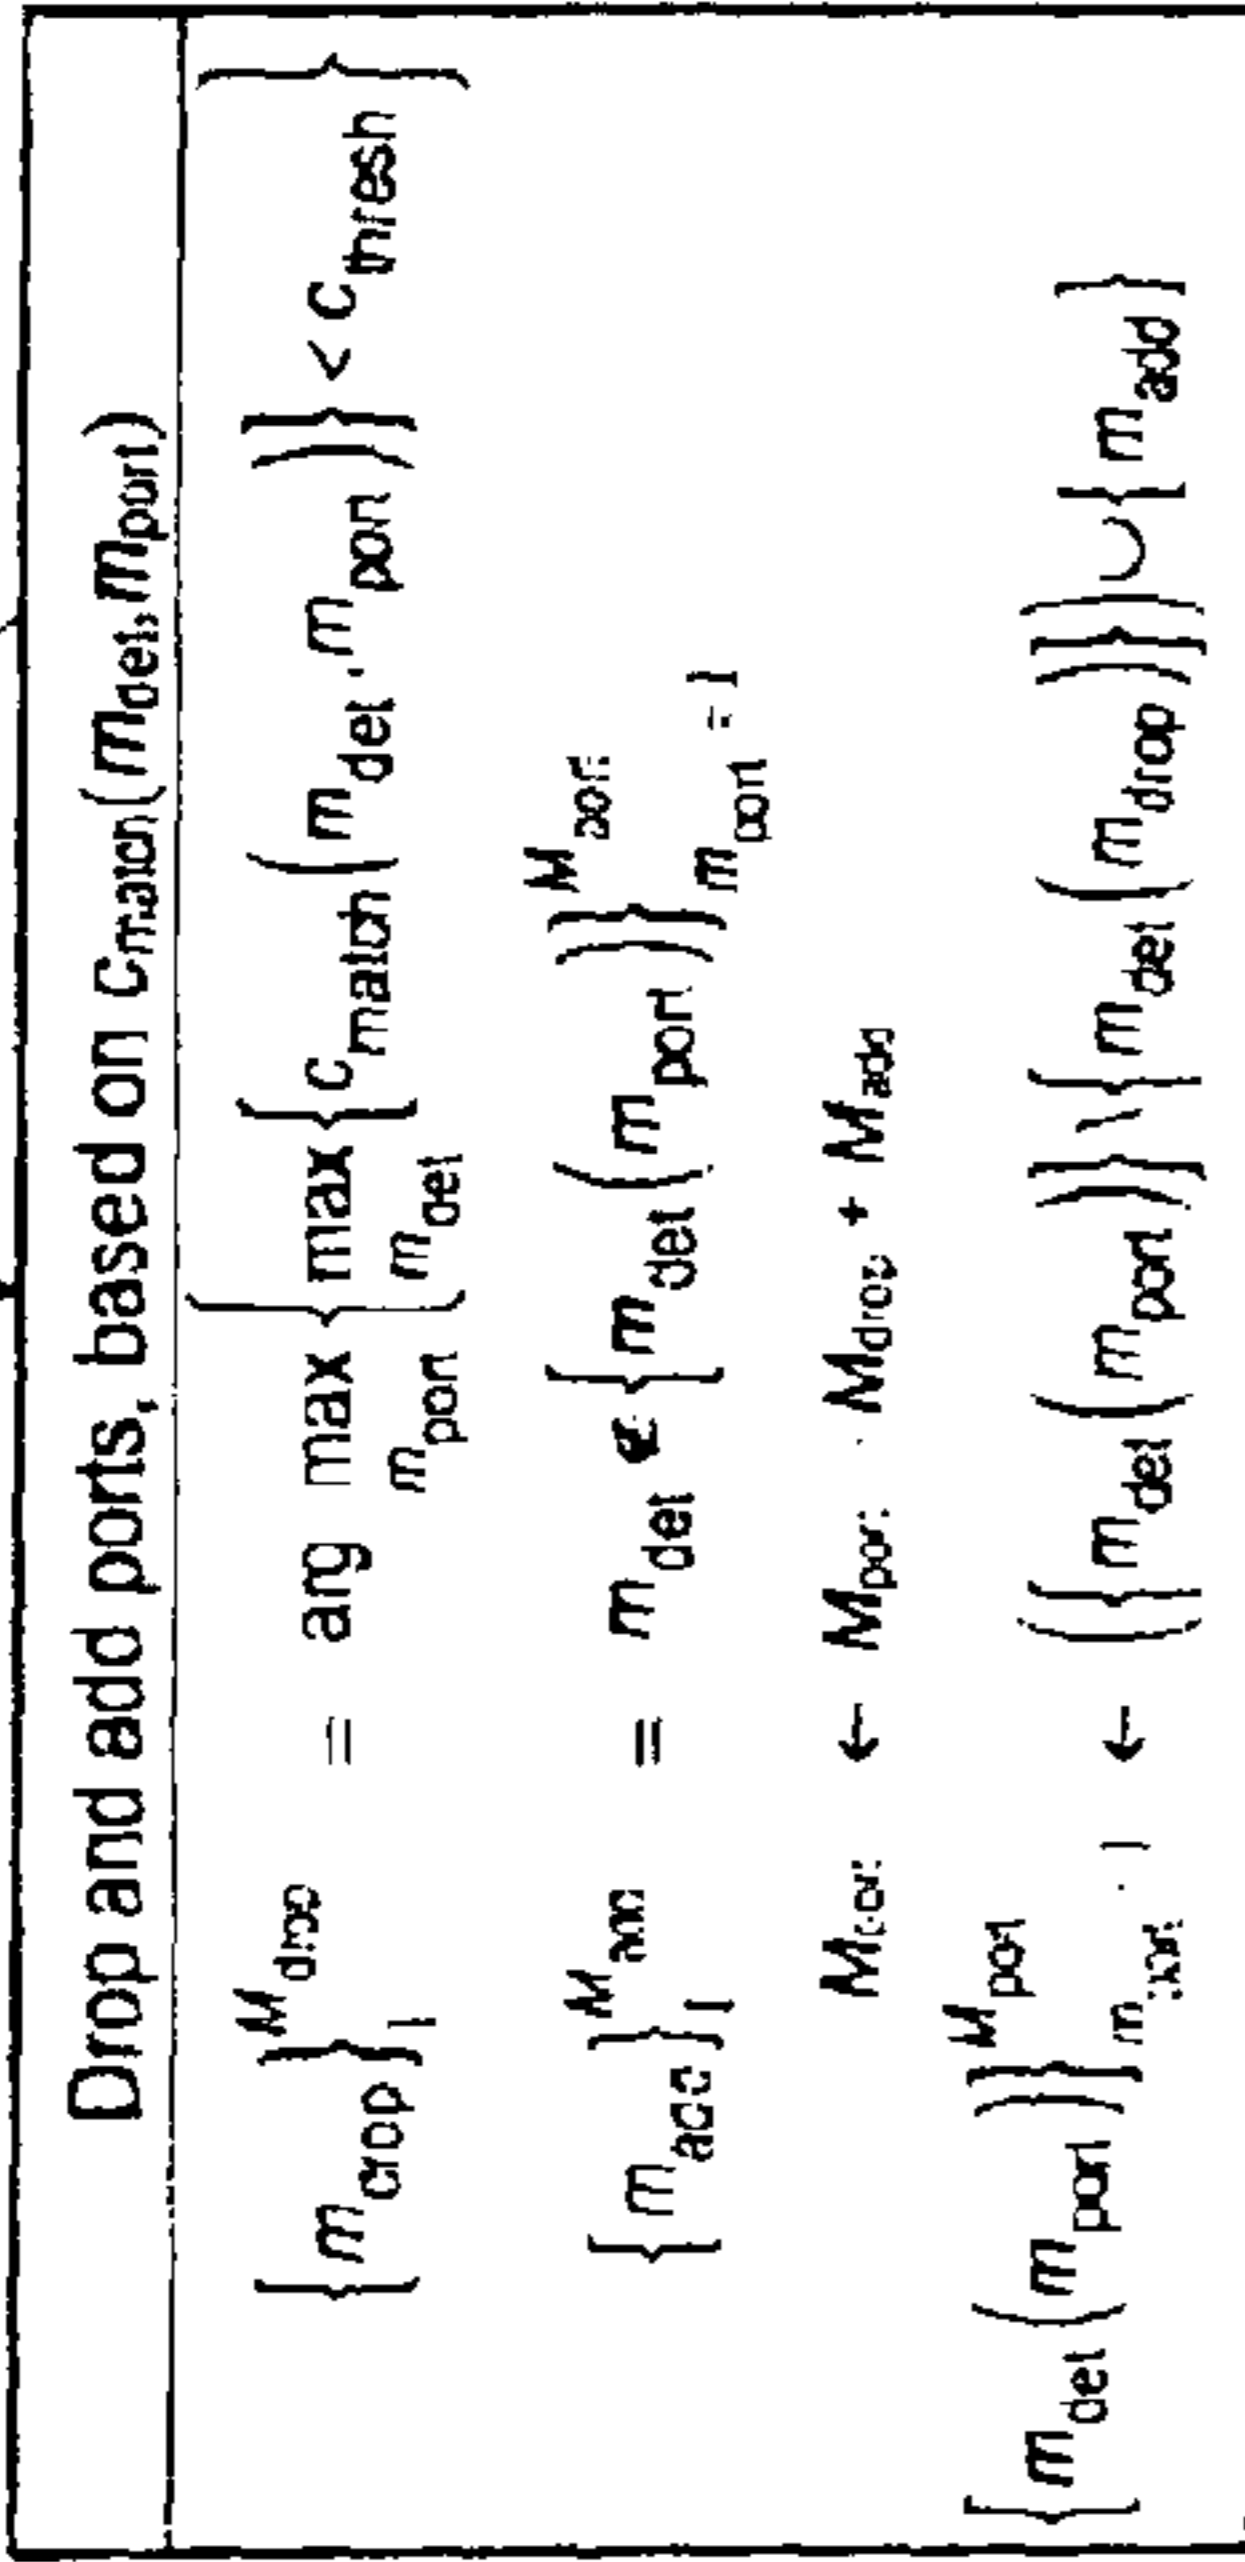 Drop and add ports, based on c_match(m_det, m_port)
{m_drop}_1^{M_drop} = arg max_{m_port} {max_{m_det} {c_match(m_det, m_port)} < c_thresh}
{m_add}_1^{M_add} = m_det ∉ {m_det(m_port)}_{m_port = 1}^{M_port}
M_port ← M_port - M_drop + M_add
{m_det(m_port)}_{m_port = 1}^{M_port} ← (({m_det(m_port)} \ {m_det(m_drop)}) ∪ {m_add}